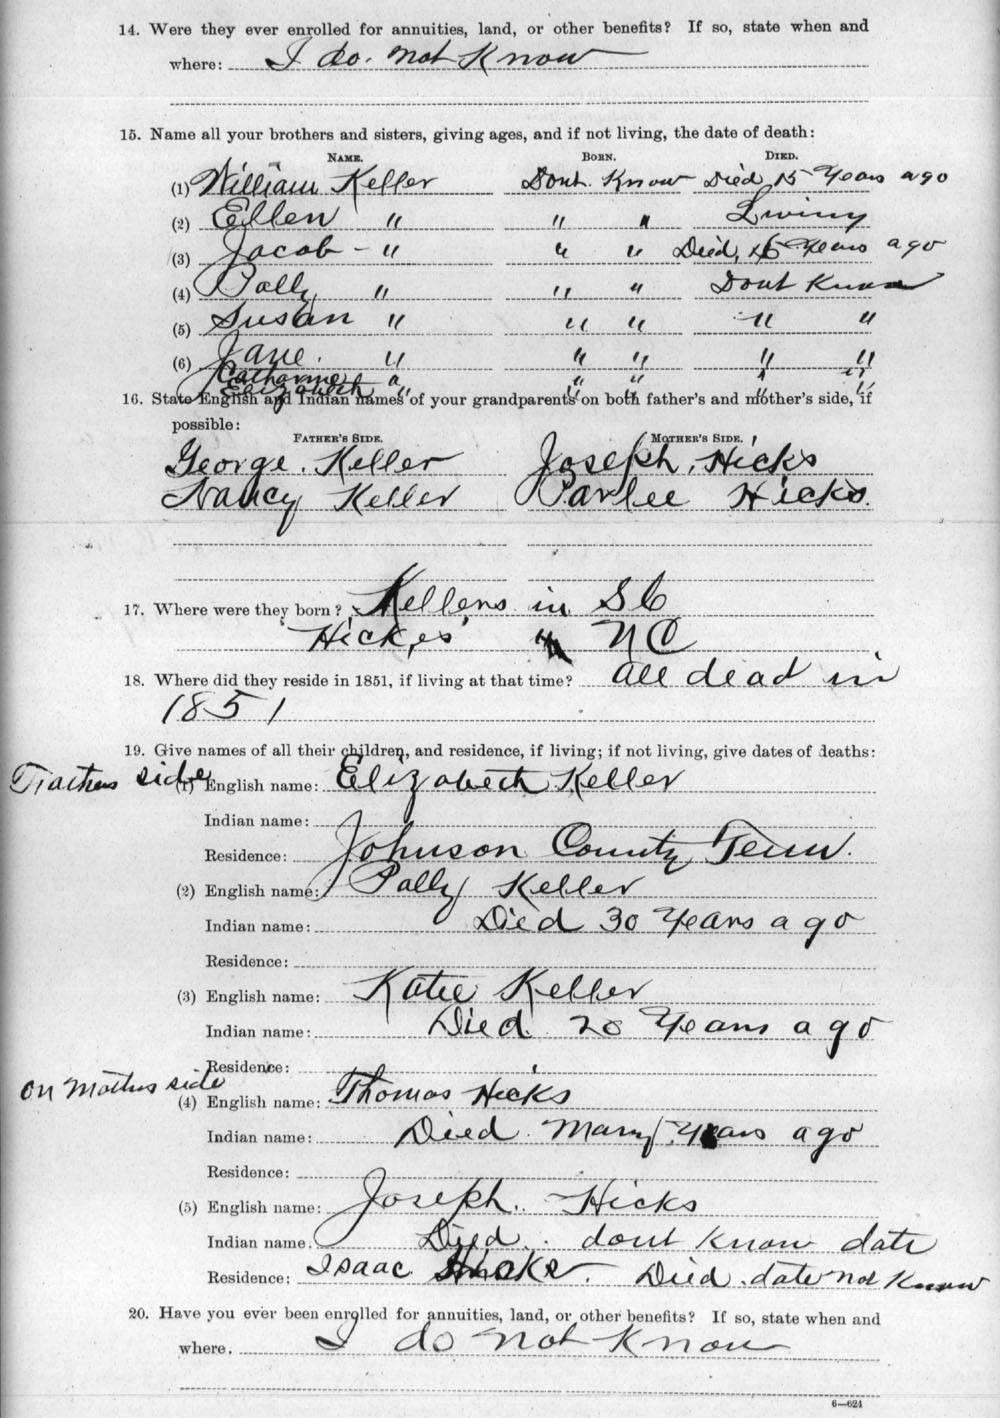 14. Were they ever enrolled for annuities, land, or other benefits? If so, state when and
where: I do. not Know
15. Name all your brothers and sisters, giving ages, and if not living, the date of death:
NAME. BORN. DIED.
(1) William Keller Dont. Know Died 15 Years ago
(2) Ellen " " " Living
(3) Jacob - " " " Died, 45 Years ago
(4) Polly " " " Dont Know
(5) Susan " " " " "
(6) Jane. " " " " "
Catharine " " " " "
Elizabeth " " " " "
16. State English and Indian names of your grandparents on both father's and mother's side, if
possible:
FATHER'S SIDE. MOTHER'S SIDE.
George. Keller Joseph. Hicks
Nancy Keller Parlee Hicks.
17. Where were they born? Kellers in SC
'Hickes' " NC
18. Where did they reside in 1851, if living at that time? all dead in
1851
19. Give names of all their children, and residence, if living; if not living, give dates of deaths:
side
(1) English name: Elizabeth Keller
Indian name:
Residence: Johnson County Tenn.
(2) English name: Polly Keller
Indian name: Died 30 Years ago
Residence:
(3) English name: Katie Keller
Indian name: Died. 20 Years ago
Residence:
On Mothers side
(4) English name: Thomas Hicks
Indian name: Died. Many Years ago
Residence:
(5) English name: Joseph. Hicks
Indian name. Died. dont know date
Residence: Isaac Hicks. Died. date not Know
20. Have you ever been enrolled for annuities, land, or other benefits? If so, state when and
where. I do not Know
6—624